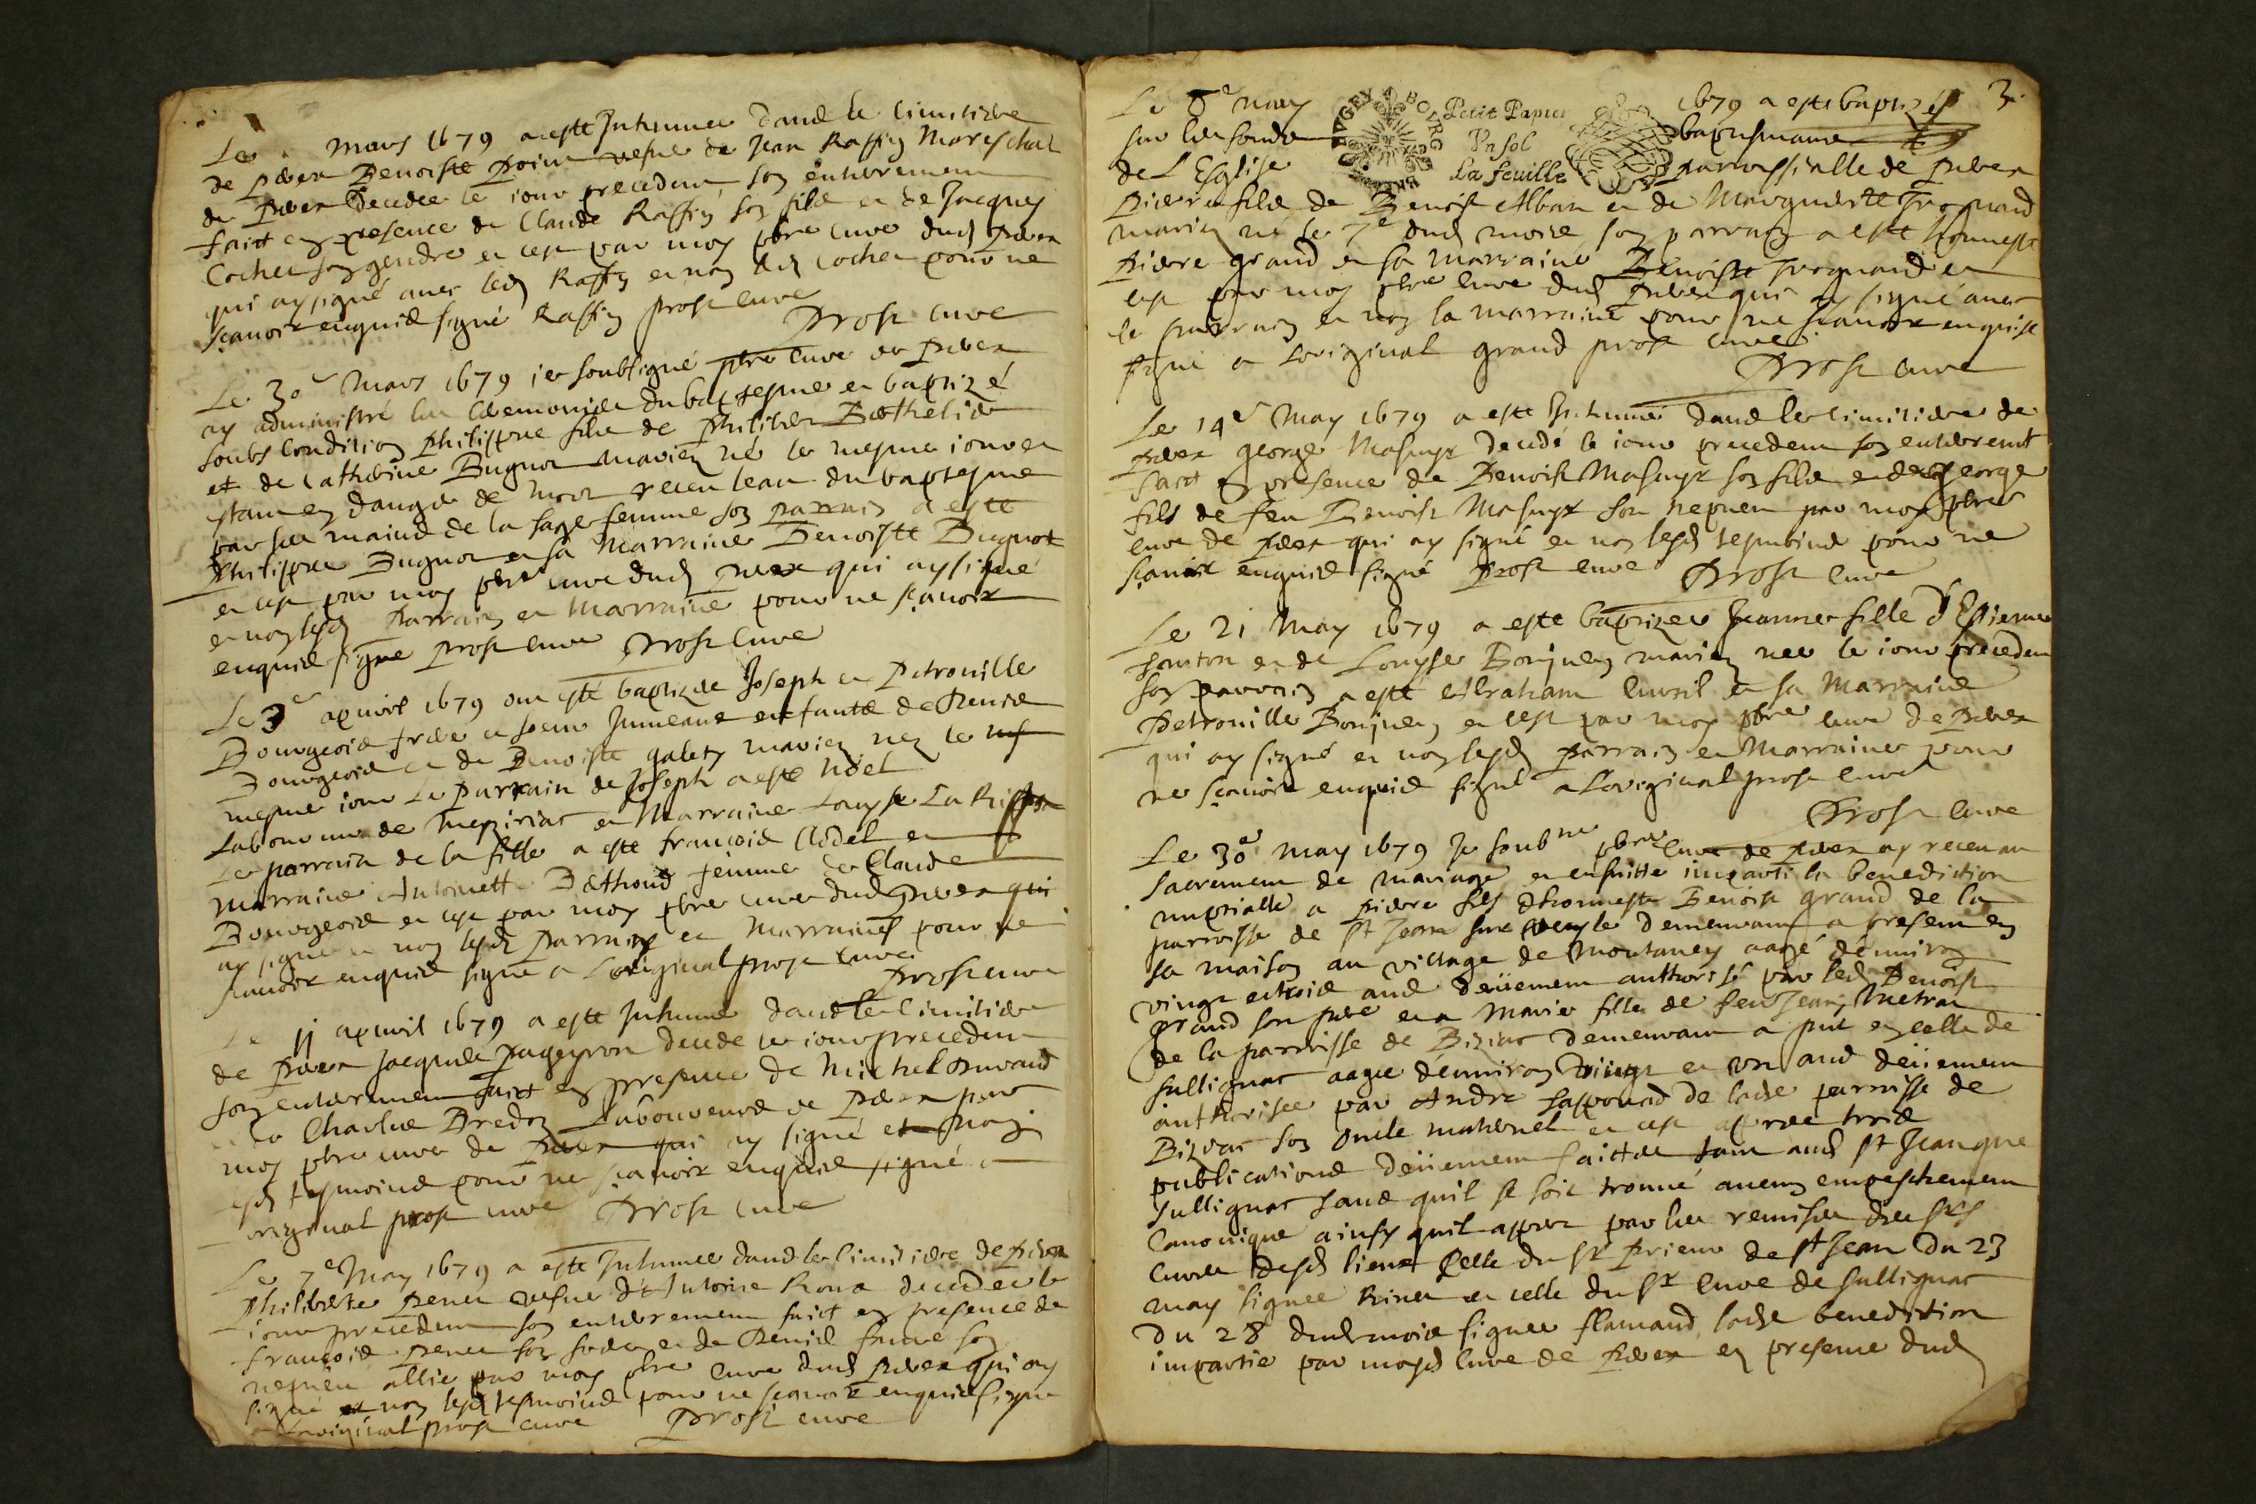 Le mars 1679 a esté Inhumee dans le Cimitiere
de priex Benoiste vefue de Jean Raffin Mareschal
de priex decedee le iour precedent son enterrement
faict en presence de Claude Raffin son fils et de Jacques
Cochet son gendre et ce par moy pbre cure dud priex
qui ay signé auec led Raffin et non led cochet pour ne
sçauoir enquis signé Raffin prost cure
Prost cure
Le 30e Mars 1679 ie soubsigné pbre cure de priex
ay administré les ceremonies du baptesme et baptizé
soubs condition philippe fils de philibert Bœthelier
et de Catherine Bugnot mariez né le mesme iour et
estant en danger de mort receu leau du baptesme
par les mains de la sage femme son parrain a esté
Philippe Bugnot et sa Marraine Benoiste Bugnot
et ce par moy pbre cure dud priex qui ay signé
et non lesd Parrain et Marraine pour ne sçauoir
enquis signé prost cure Prost cure
Le 3e apuril 1679 ont esté baptizes Joseph et Petronille
Bourgeois frere et soeur Jumeaux enfants de Denis
Bourgeois et de Benoiste galet mariez nez le
mesme iour Le Parrain de Joseph a esté Noel
Laboureur de mepiriat et Marraine Louyse La
Le parrain de la fille a esté françois Clodel et
Marraine Antoinette Bœthoud femme de Claude
Bourgeois et ce par moy pbre cure dud priex qui
ay signé et non lesd Parrains et Marraines pour ne
scauoir enquis signé a Loriginal prost cure
Prost cure
Le 11 apuril 1679 a esté Inhumé dans le Cimitiere
de priex Jacques pageyron decede le iour precedent
son enterrement faict en presence de Michel Durand
et Charles Bredon Laboureurs de priex par
moy pbre cure de priex qui ay signé et non
lesd tesmoins pour ne sçauoir enquis signé a
original prost cure Prost cure
Le 7e May 1679 a esté Inhumee dans le Cimitiere de priex
Philiberte peruet vefue d'Antoine Rona decedee le
iour precedent son enterrement faict en presence de
françois peruet son frere et de Denis son
nepueu allié par moy pbre cure dud priex qui ay
signé et non lesd tesmoins pour ne sçauoir enquis signé
a Loriginal prost cure Prost cure
3.
Le 8e may 1679 a esté baptizé
sur les fonds baptismaux
de L'Eglise parroissialle de priex
BVGEY BOVRG
Petit Papier
Vn sol
La feuille
Pierre fils de Benoist Alban et de Marguerite Broquand
mariez né le 7e dud mois son parrain a esté honneste
Pierre grand et sa Marraine Benoiste Broquand et
ce par moy pbre cure dud priex qui ay signé auec
le parrain et non la marraine pour ne scauoir enquise
signé a Loriginal grand prost cure
Prost cure
Le 14e May 1679 a esté Inhumé dans le Cimitiere de
priex george Masuyr decedé le iour precedent son enterremt
faict en presence de Benoist Masuyr son fils et de George
fils de feu Benoist Masuyr son nepueu par moy pbre
cure de priex qui ay signé et non lesd tesmoins pour ne
sçauoir enquis signé Prost cure Prost cure
Le 21 May 1679 a esté baptizee Jeanne fille d'Estienne
et de Louyse Bonjuen mariez nee le iour precedent
son parrain a esté Abraham Curvil et sa Marraine
Petronille Bonjuen et ce par moy pbre cure de priex
qui ay signé et non lesd Parrain et Marraine pour
ne sçauoir enquis signé a Loriginal prost cure
Prost cure
Le 30e May 1679 Je soubne pbre cure de priex ay receu au
sacrement de mariage et ensuitte imparti la benediction
nuptialle a pierre fils dhonneste Benoist grand de la
parroisse de St Jean sur veyle demeurant a present en
sa maison au village de Montaney aagé denuiron
vingt et trois ans deüement authorisé par led Benoist
grand son pere et a Marie fille de feu Jean Metrat
de la parroisse de Biziat demeurant a pnt en celle de
sullignat aagee denuiron vingt et vn ans deüement
authorisee par Andre de lade parroisse de
Biziat son oncle maternel et ce apres trois
publications deüement faictes tant aud St Jean que
sullignat sans quil se soit trouué aucun empeschement
Canonique ainsy quil appert par les remises des Srs
cures desd lieux celle du Sr prieur de St Jean du 23
may signee Riuet et celle du Sr cure de sullignat
du 28 dud mois signee flamand lade benediction
impartie par moyd cure de priex en presence dud